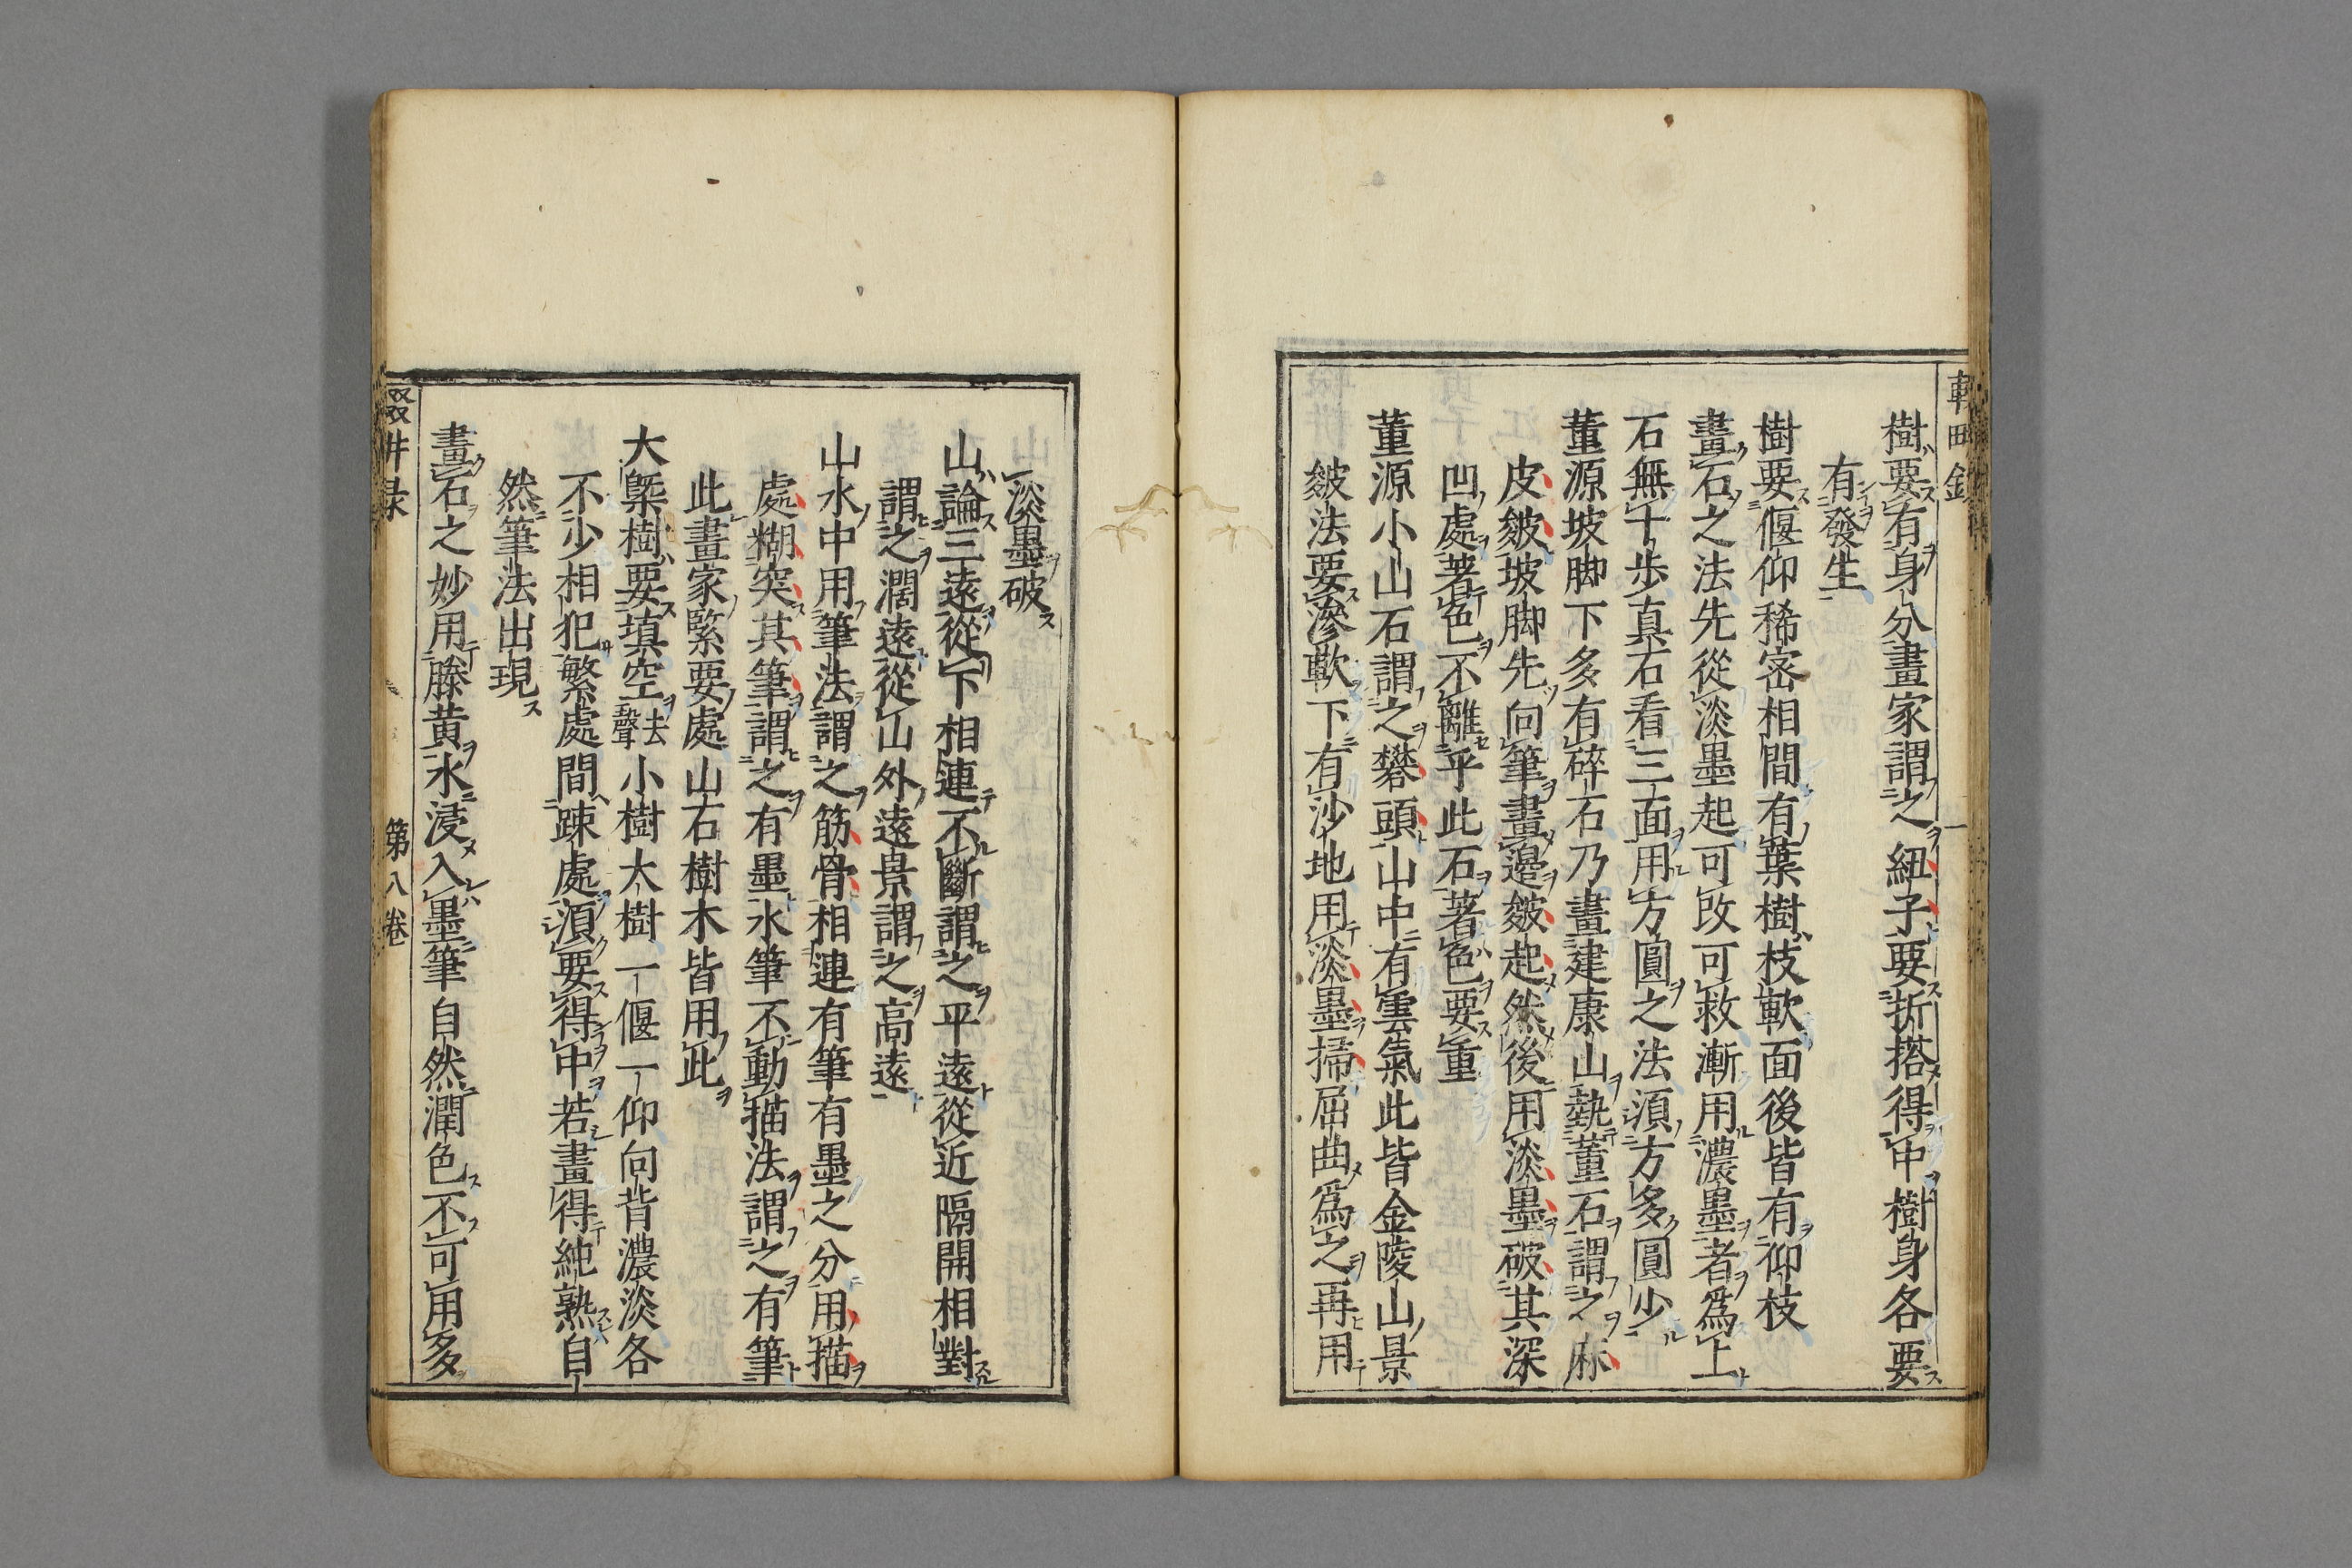 樹要有身分畫家謂之紐子要折搭得中樹身各要
有發生
樹要偃仰稀密相間有葉樹枝軟面後皆有仰枝
畫石之法先從淡墨起可改可救漸用濃墨者爲上
石無十步真石看三面用方圓之法須方多圓少
董源坡脚下多有碎石乃畫建康山勢董石謂之麻
皮皴坡脚先向筆畫邊皴起然後用淡墨破其深
凹處著色不離乎此石著色要重
董源小山石謂之礬頭山中有雲氣此皆金陵山景
皴法要滲軟下有沙地用淡墨掃屈曲爲之再用
淡墨破
山論三遠從下相連不斷謂之平遠從近隔開相對
謂之濶遠從山外遠景謂之高遠
山水中用筆法謂之筋骨相連有筆有墨之分用描
處糊突其筆謂之有墨水筆不動描法謂之有筆
此畫家緊要處山石樹木皆用此
大槩樹要填空去聲小樹大樹一偃一仰向背濃淡各
不少相犯繁處間疎處須要得中若畫得純熟自
然筆法出現
畫石之妙用藤黄水浸入墨筆自然潤色不可用多
第八卷